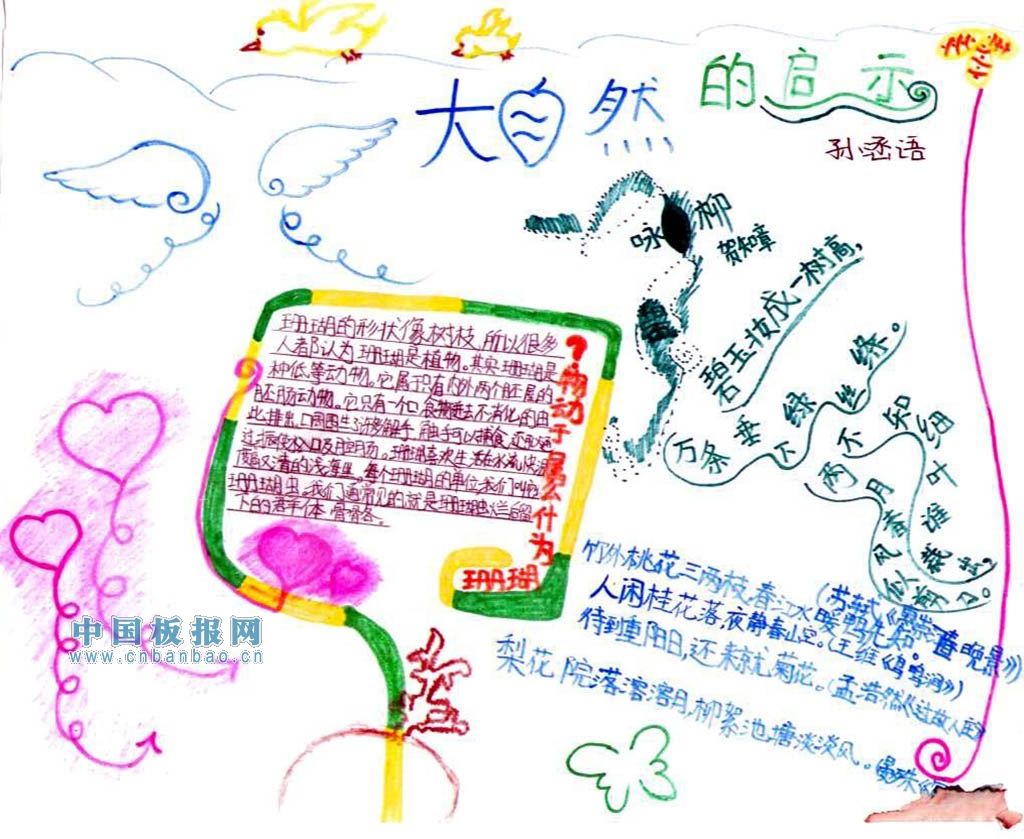 大自然的启示
孙涵语
咏柳
贺知章
碧玉妆成一树高,
万条垂下绿丝绦。
不知细叶谁裁出,
二月春风似剪刀。
珊瑚为什么属于动物?
珊瑚的形状像树枝,所以很多
人都认为珊瑚是植物。其实珊瑚是
种低等动物。它属只有内外两个胚层的
腔肠动物。它只有一个口,食物进去不消化的由
此排出,口周围生许多触手,触手可以捕食,还可以通
过振使水入口及腔肠。珊瑚喜欢生活在水流快温
度高又清的浅海里。每个珊瑚的单位我们叫它
珊瑚虫。我们通常见的就是珊瑚虫烂后留
下的群体骨骼。
竹外桃花三两枝,春江水暖鸭先知。(苏轼《惠崇春晚景》)
人闲桂花落,夜静春山空。(王维《鸟鸣涧》)
待到重阳日,还来就菊花。(孟浩然《过故人庄》
梨花院落溶溶月,柳絮池塘淡淡风。(晏殊《
中国板报网
www.cnbanbao.cn